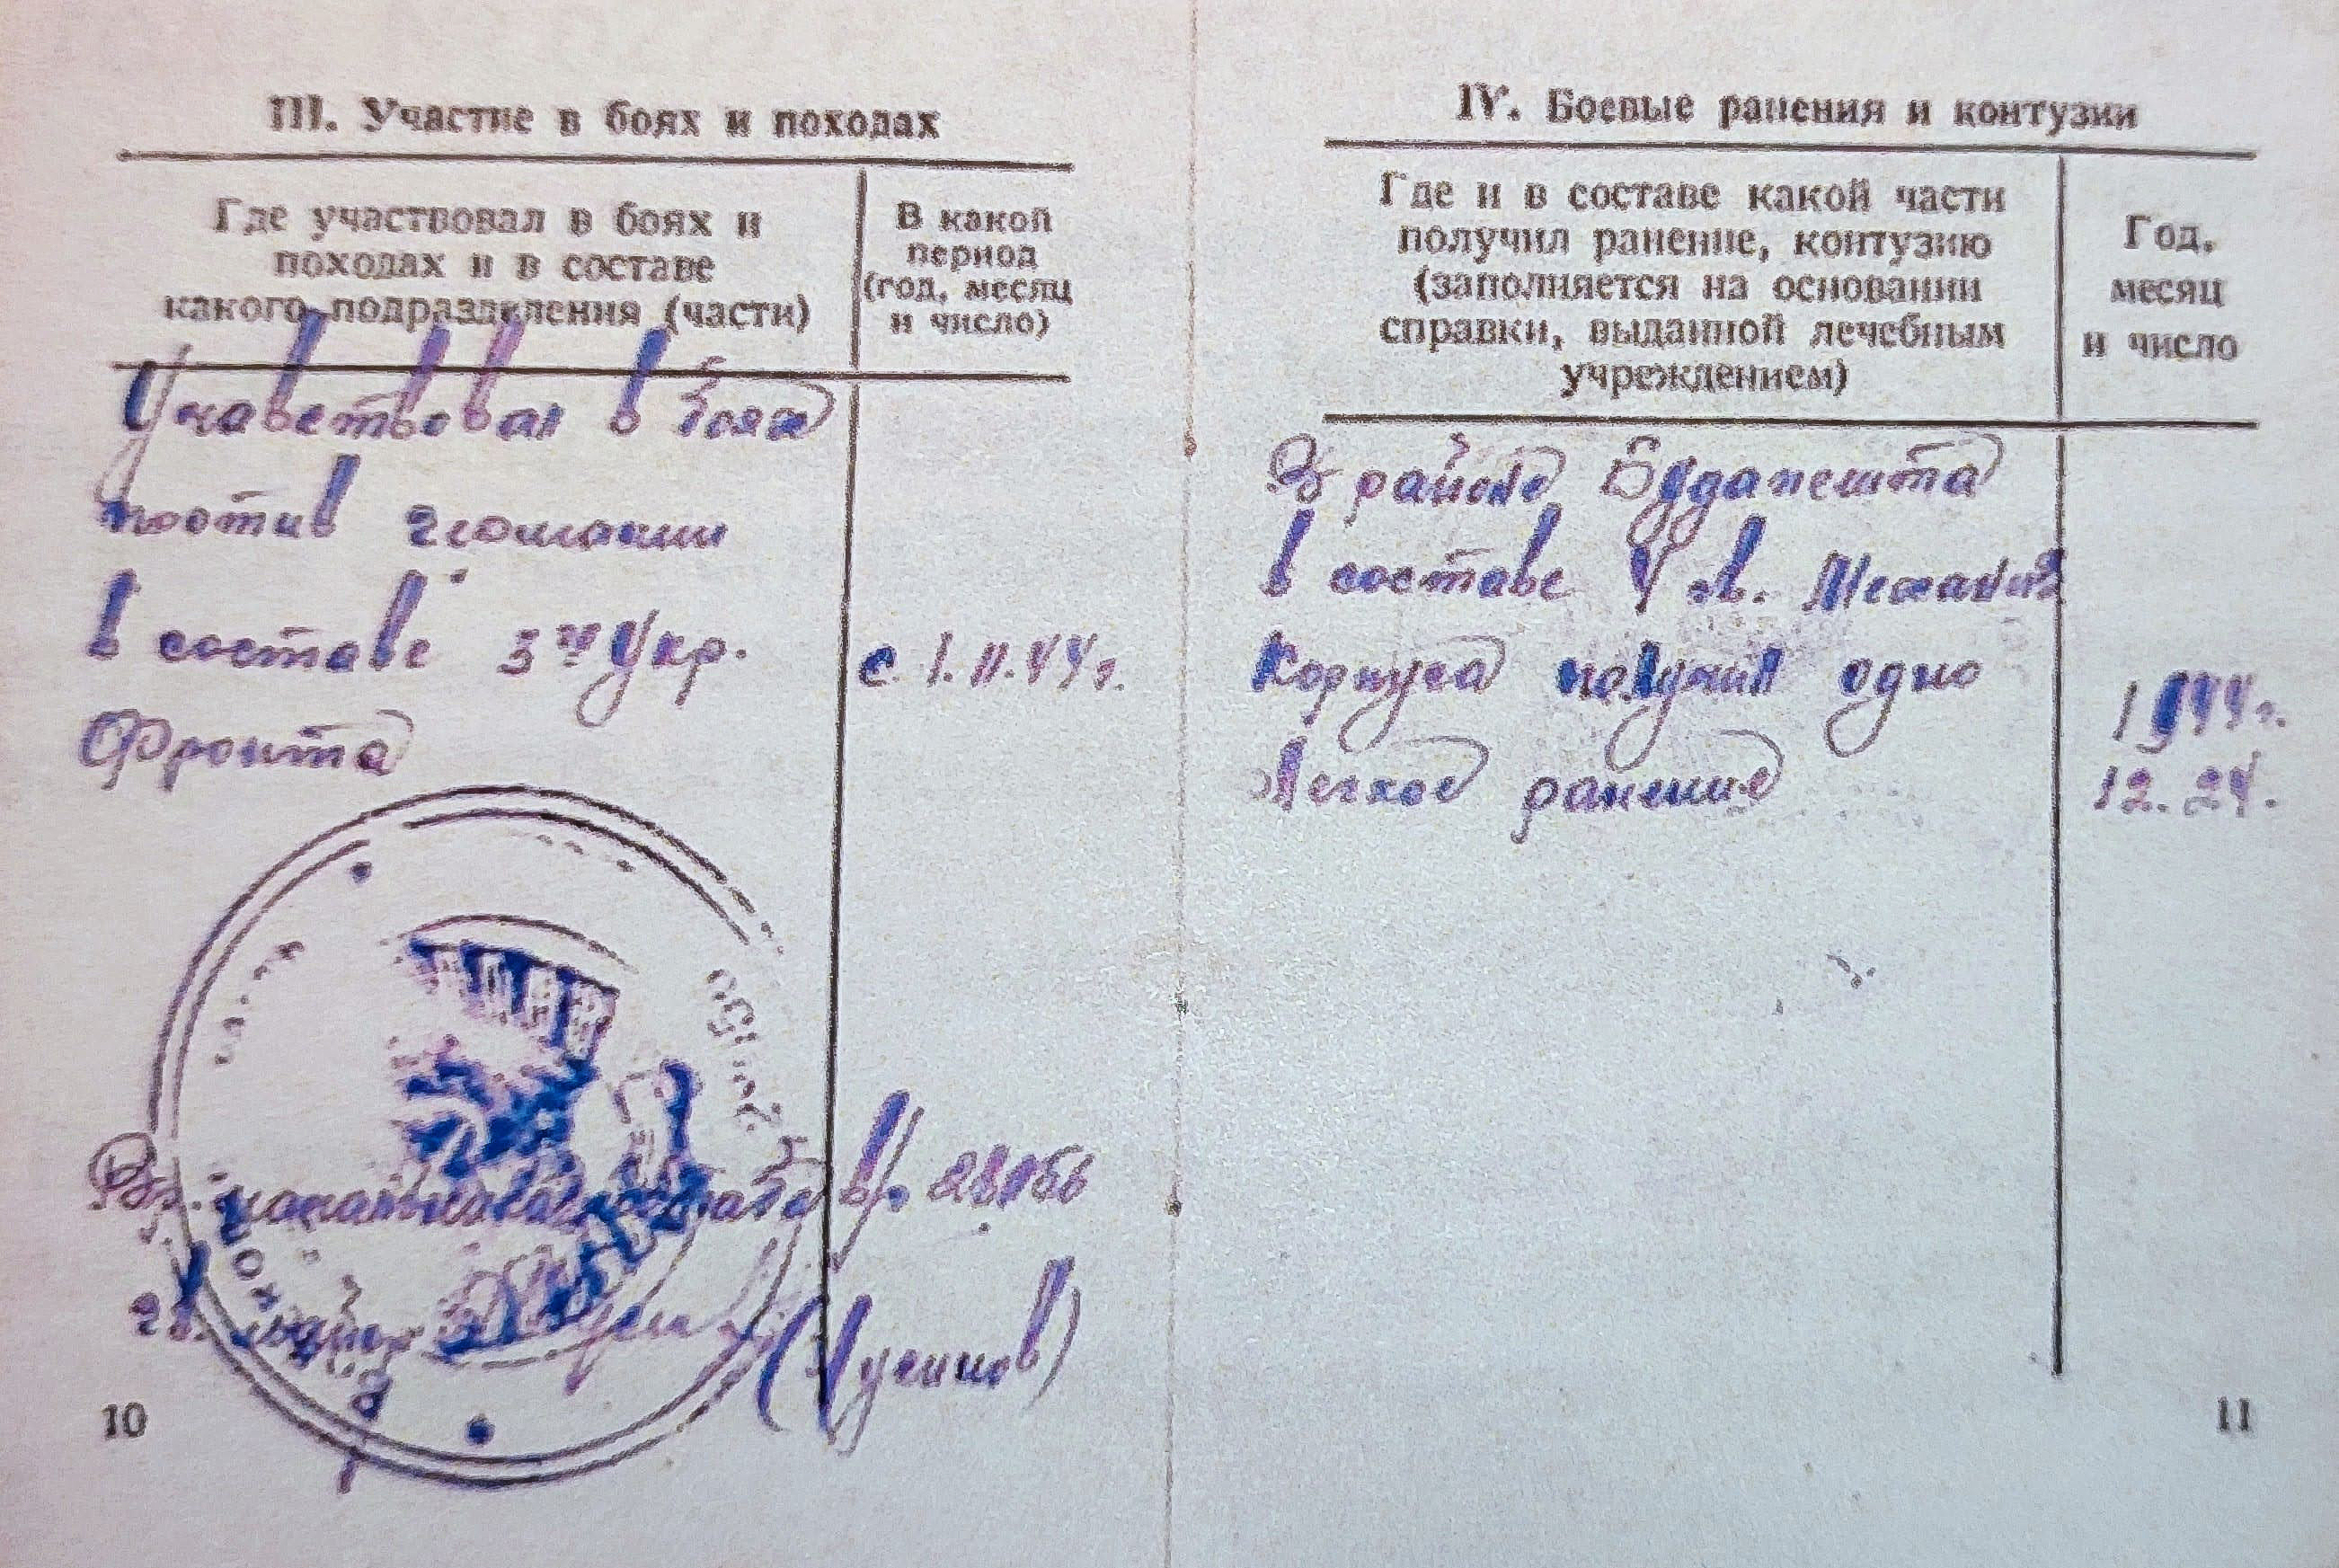 III. Участие в боях и походах
Где участвовал в боях и
походах и в составе
какого подразделения (части)
В какой
период
(год, месяц
и число)
Участвовал в боях
против германии
в составе 3го Укр.
Фронта
с 1.11.44г.
в/ч 28156
(Русинов)
10
IV. Боевые ранения и контузии
Где и в составе какой части
получил ранение, контузию
(заполняется на основании
справки, выданной лечебным
учреждением)
Год,
месяц
и число
В районе Будапешта
в составе гв. Механиз
Корпуса получил одно
Легкое ранение
1944г.
12. 24.
11